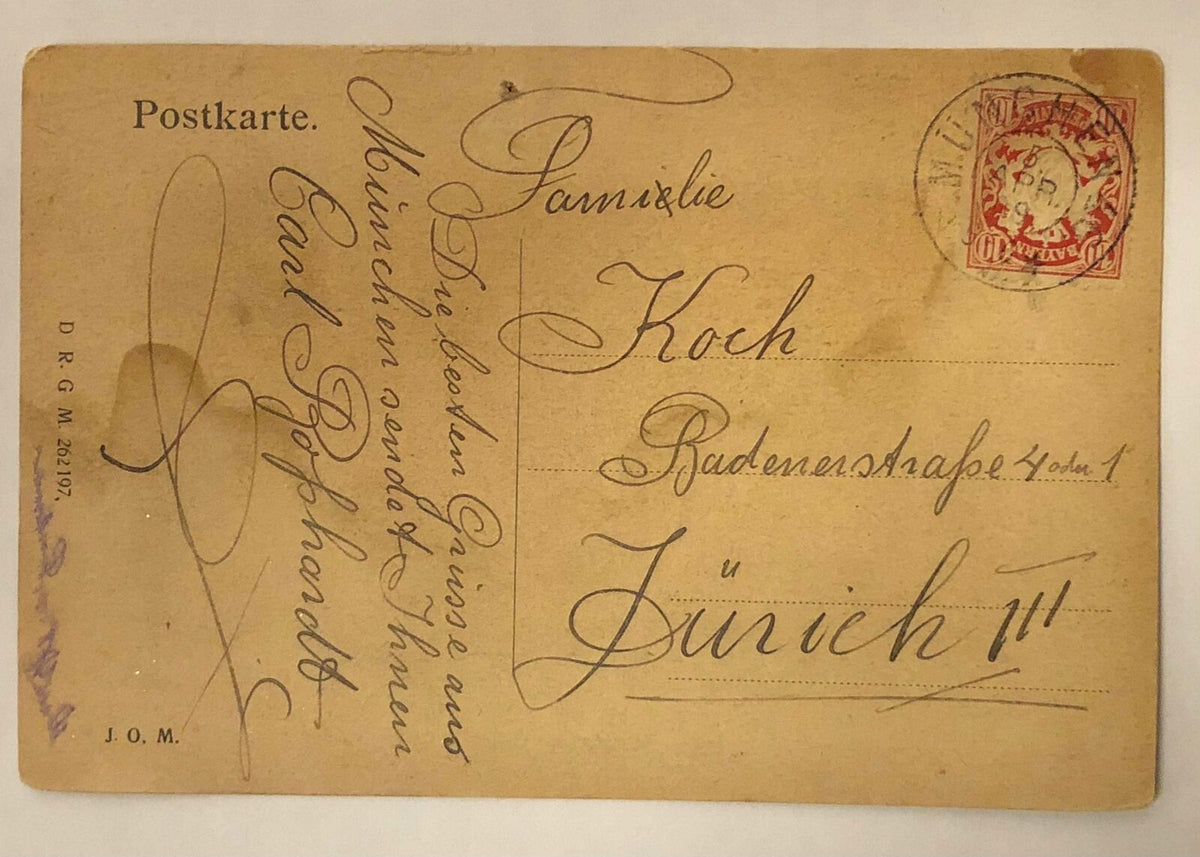 Postkarte.
Familie
Koch
Badenerstraße 4 oder 1
Zürich III
Die besten Grüsse aus
München sendet Ihnen
Carl
D. R. G. M. 262197.
J. O. M.
MÜNCHEN
APR.
BAYERN
10
10